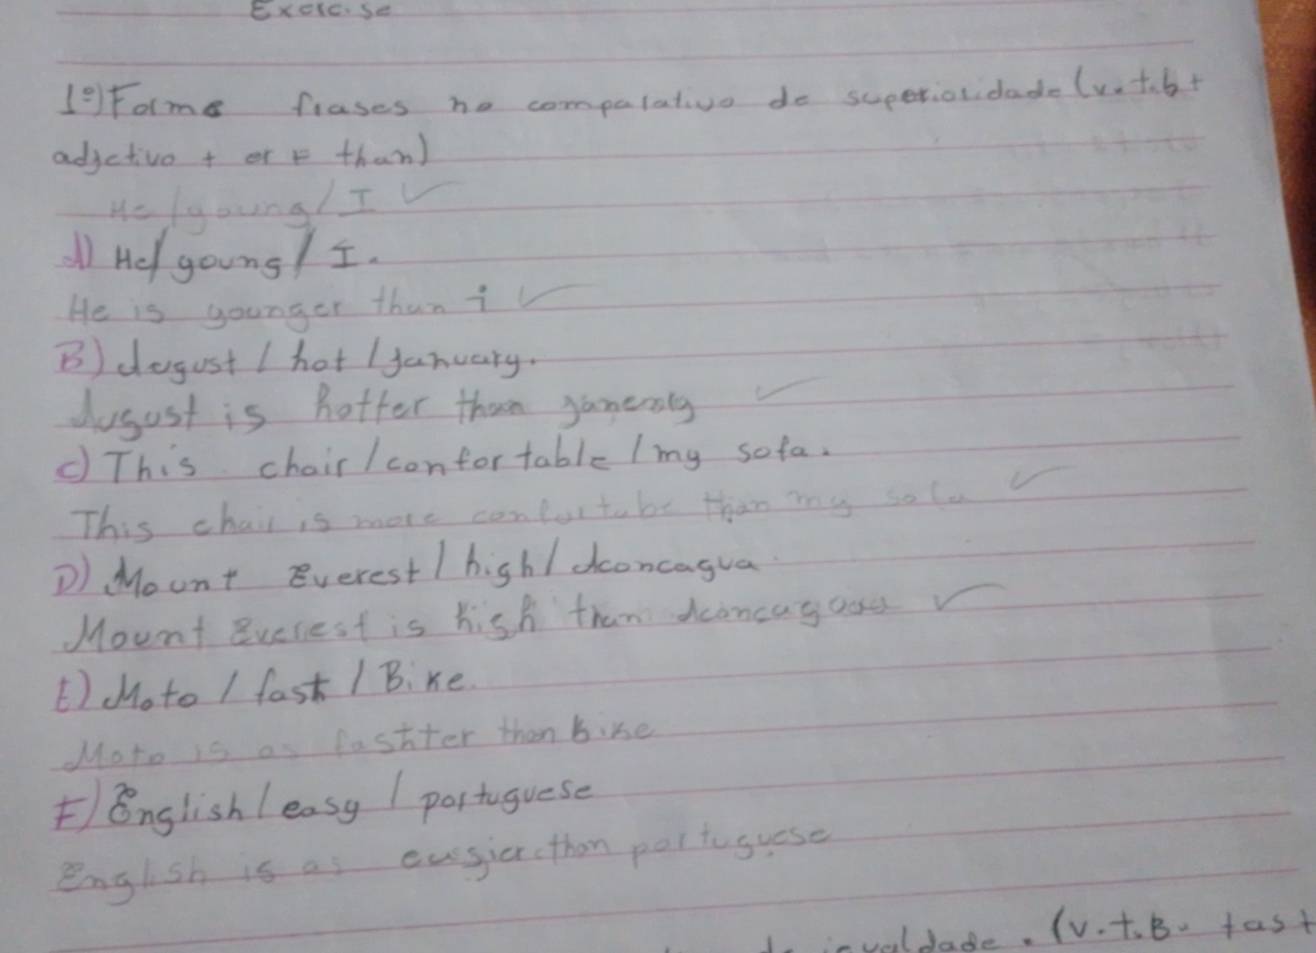 Exercise
1º) Forme frases no comparativo de superioridade (v.t.b +
adjectivo + er + than)
He/young/I
A) He/young/I.
He is younger than i
B) August / hot / January.
August is hotter than
C) This chair / confortable / my sofa.
This chair is more confortabe than my sofa
D) Mount Everest / high / Aconcagua
Mount Everest is high than
E) Moto / fast / Bike.
Moto is as fashter than bike
F) English / easy / portuguese
English is as easgier than portuguese
de igualdade. (v.t.B. + as +